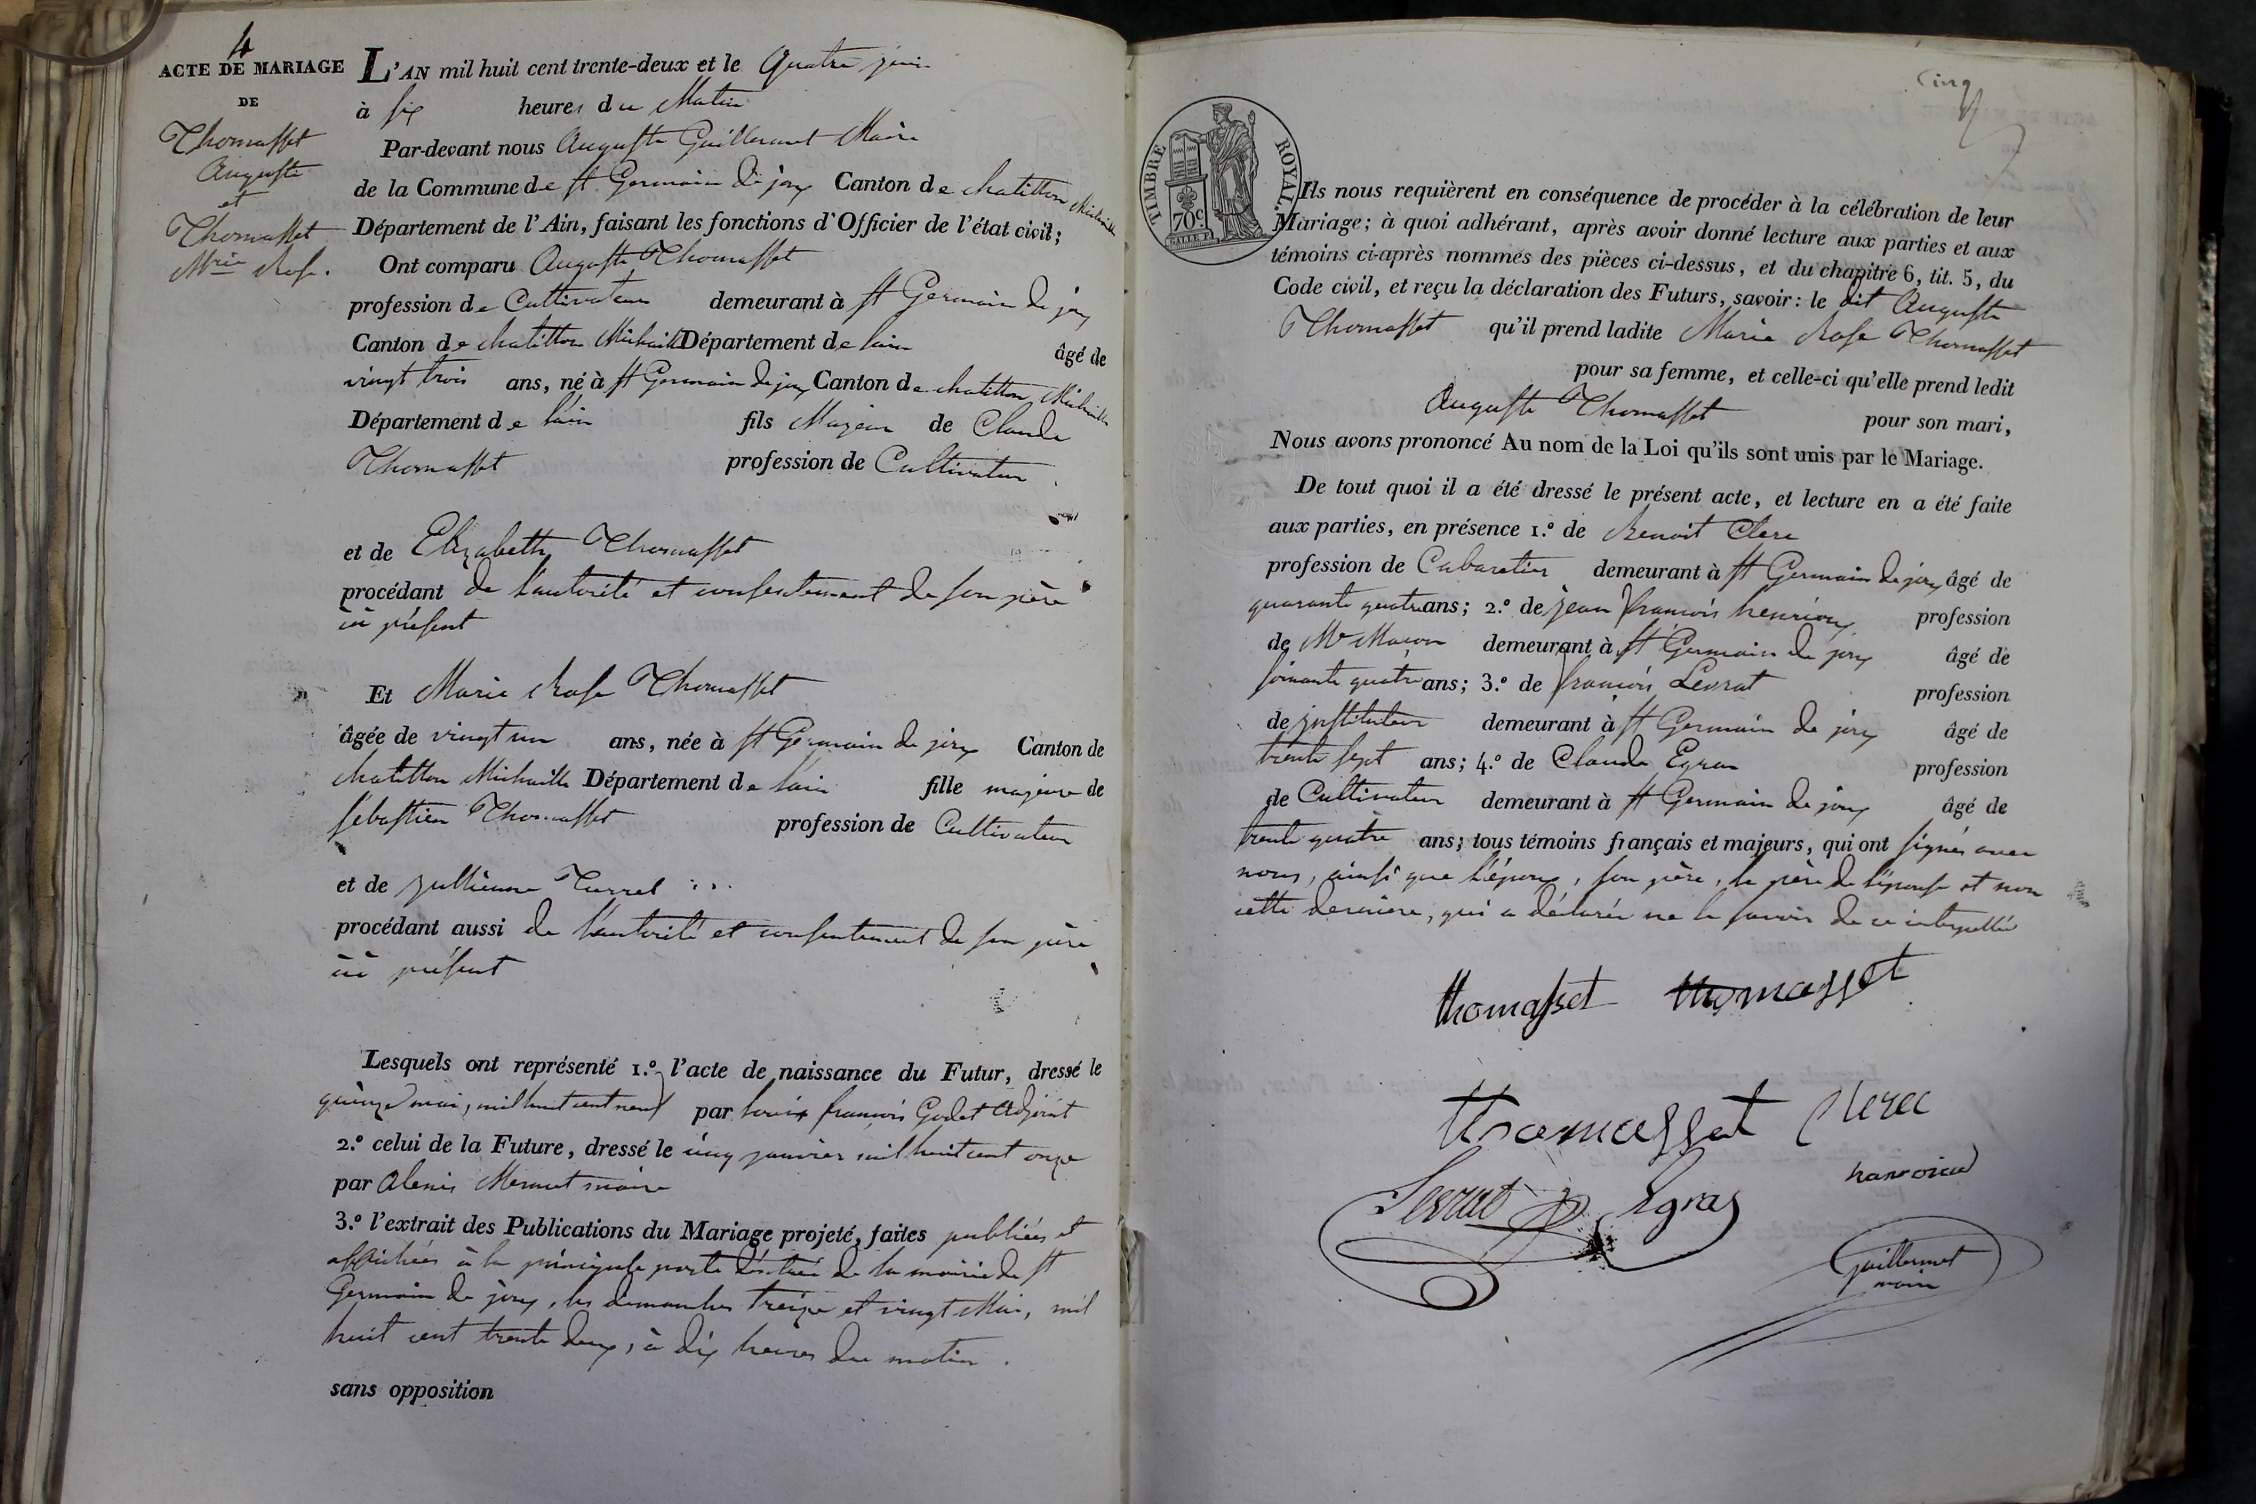 4
ACTE DE MARIAGE
DE
Thomasset
Auguste
et
Thomasset
Mrie Rose.
L'AN mil huit cent trente-deux et le Quatre juin
à six heures du Matin
Par-devant nous Auguste Guillermet Maire
de la Commune de St Germain de joux Canton de chatillon Michaille
Département de l'Ain, faisant les fonctions d'Officier de l'état civil;
Ont comparu Auguste Thomasset
profession de Cultivateur demeurant à St Germain de joux
Canton de chatillon Michaille Département de lain âgé de
vingt trois ans, né à St Germain de joux Canton de chatillon Michaille
Département de lain fils Majeur de Claude
Thomasset profession de Cultivateur
et de Elizabeth Thomasset
procédant de l'autorité et consentement de son père
ici présent
Et Marie Rose Thomasset
âgée de vingt un ans, née à St Germain de joux Canton de
chatillon Michaille Département de lain fille majeure de
sébastien Thomasset profession de Cultivateur
et de jullienne Turrel
procédant aussi de l'autorité et consentement de son père
ici présent
Lesquels ont représenté 1.º l'acte de naissance du Futur, dressé le
quinze mai, mil huit cent neuf par louis françois Godet Adjoint
2.º celui de la Future, dressé le cinq janvier mil huit cent onze
par Alexis Mermet maire
3.º l'extrait des Publications du Mariage projeté, faites publiées et
affichées à la principale porte d'entrée de la mairie de St
Germain de joux, les dimanches treize et vingt Mai, mil
huit cent trente deux, à dix heures du matin.
sans opposition
Cinq
TIMBRE ROYAL.
70c
Ils nous requièrent en conséquence de procéder à la célébration de leur
Mariage; à quoi adhérant, après avoir donné lecture aux parties et aux
témoins ci-après nommés des pièces ci-dessus, et du chapitre 6, tit. 5, du
Code civil, et reçu la déclaration des Futurs, savoir: le dit Auguste
Thomasset qu'il prend ladite Marie Rose Thomasset
pour sa femme, et celle-ci qu'elle prend ledit
Auguste Thomasset pour son mari,
Nous avons prononcé Au nom de la Loi qu'ils sont unis par le Mariage.
De tout quoi il a été dressé le présent acte, et lecture en a été faite
aux parties, en présence 1.º de Benoit Clerc
profession de Cabaretier demeurant à St Germain de joux âgé de
quarante quatre ans; 2.º de jean françois henrioux profession
de Me Maçon demeurant à St Germain de joux âgé de
soixante quatre ans; 3.º de françois Levrat profession
de jnstituteur demeurant à St Germain de joux âgé de
trente sept ans; 4.º de Claude Egraz profession
de Cultivateur demeurant à St Germain de joux âgé de
trente quatre ans; tous témoins français et majeurs, qui ont signés avec
nous, ainsi que l'époux, son père, le père de l'épouse et non
cette dernière, qui a déclarée ne le savoir de ce interpellée
thomasset thomasset
thomasset Clerc
Levrat Egraz
Guillermet
maire